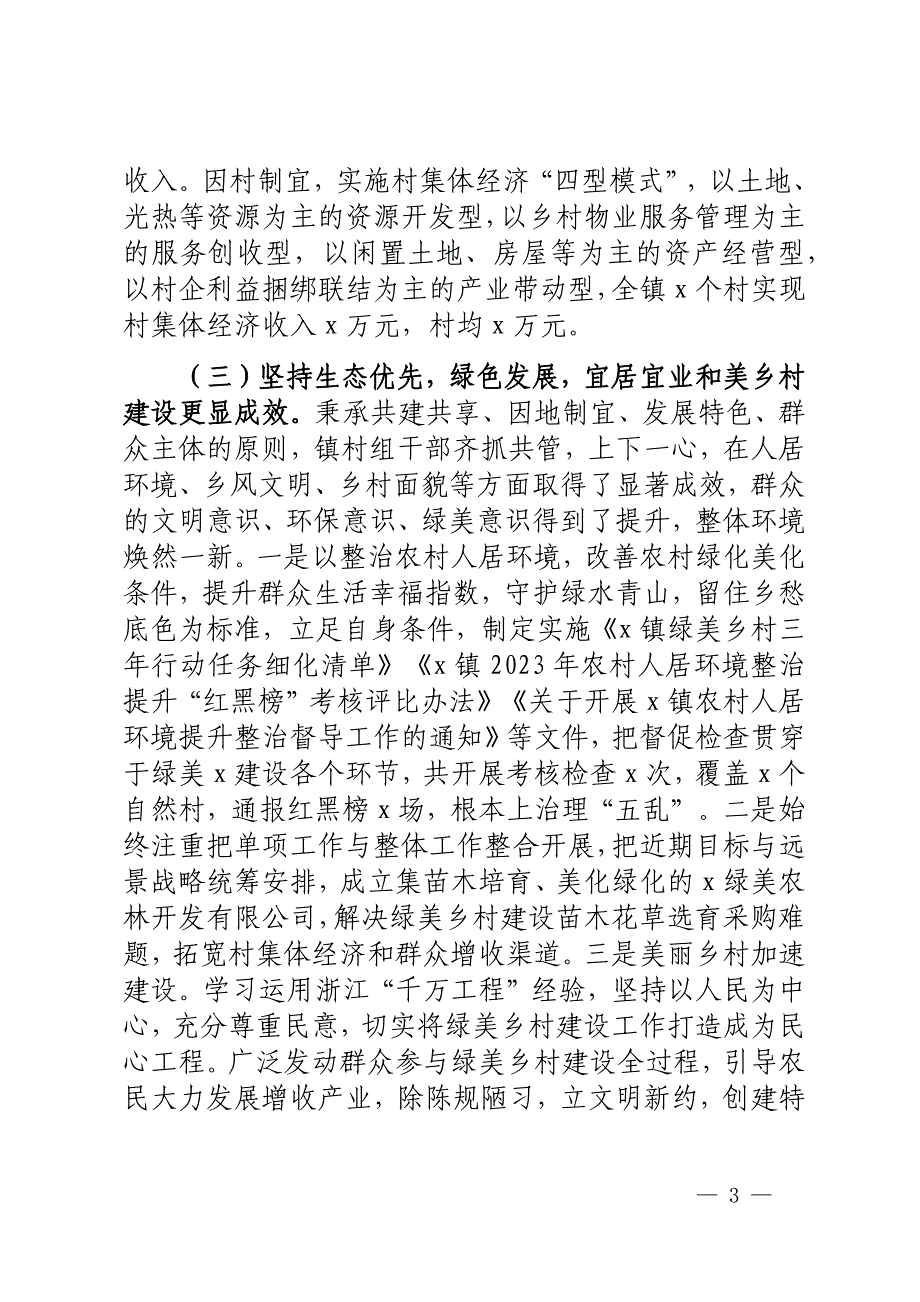 收入。因村制宜，实施村集体经济“四型模式”，以土地、
光热等资源为主的资源开发型，以乡村物业服务管理为主
的服务创收型，以闲置土地、房屋等为主的资产经营型，
以村企利益捆绑联结为主的产业带动型，全镇 x 个村实现
村集体经济收入 x 万元，村均 x 万元。
（三）坚持生态优先，绿色发展，宜居宜业和美乡村
建设更显成效。秉承共建共享、因地制宜、发展特色、群
众主体的原则，镇村组干部齐抓共管，上下一心，在人居
环境、乡风文明、乡村面貌等方面取得了显著成效，群众
的文明意识、环保意识、绿美意识得到了提升，整体环境
焕然一新。一是以整治农村人居环境，改善农村绿化美化
条件，提升群众生活幸福指数，守护绿水青山，留住乡愁
底色为标准，立足自身条件，制定实施《x 镇绿美乡村三
年行动任务细化清单》《x 镇 2023 年农村人居环境整治
提升“红黑榜”考核评比办法》《关于开展 x 镇农村人居
环境提升整治督导工作的通知》等文件，把督促检查贯穿
于绿美 x 建设各个环节，共开展考核检查 x 次，覆盖 x 个
自然村，通报红黑榜 x 场，根本上治理“五乱”。二是始
终注重把单项工作与整体工作整合开展，把近期目标与远
景战略统筹安排，成立集苗木培育、美化绿化的 x 绿美农
林开发有限公司，解决绿美乡村建设苗木花草选育采购难
题，拓宽村集体经济和群众增收渠道。三是美丽乡村加速
建设。学习运用浙江“千万工程”经验，坚持以人民为中
心，充分尊重民意，切实将绿美乡村建设工作打造成为民
心工程。广泛发动群众参与绿美乡村建设全过程，引导农
民大力发展增收产业，除陈规陋习，立文明新约，创建特
— 3 —